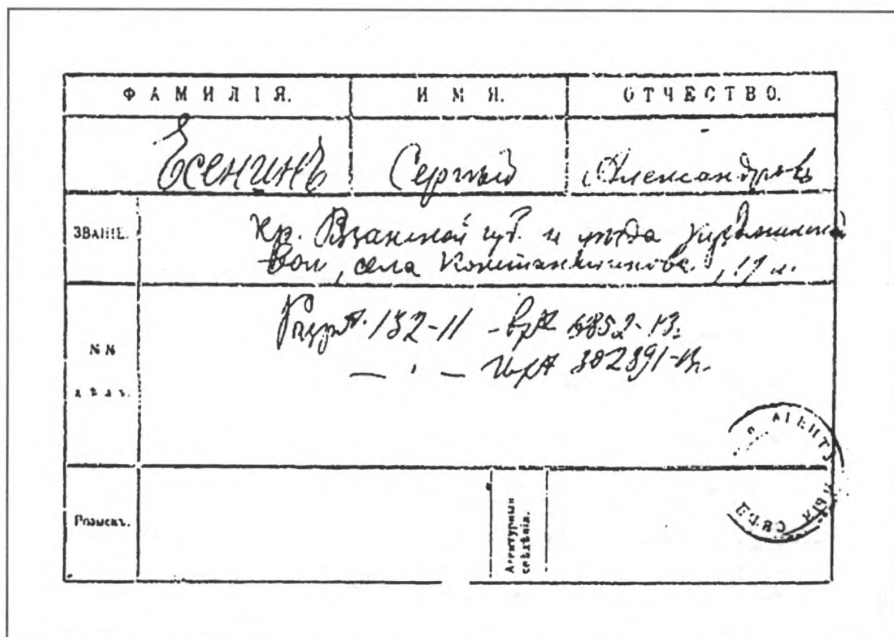 ФАМИЛІЯ. ИМЯ. ОТЧЕСТВО.
Есенинъ Сергѣй Александровъ
ЗВАНІЕ.
кр. Рязанской губ. и уѣзда Кузьминской
вол, села Константиново, 19 л.
№№
дѣлъ.
132-11 5852-13.
— " — 302391-13.
Розыскъ.
Агентурныя
свѣдѣнія.
АГЕНТУРНЫЯ СВѢД